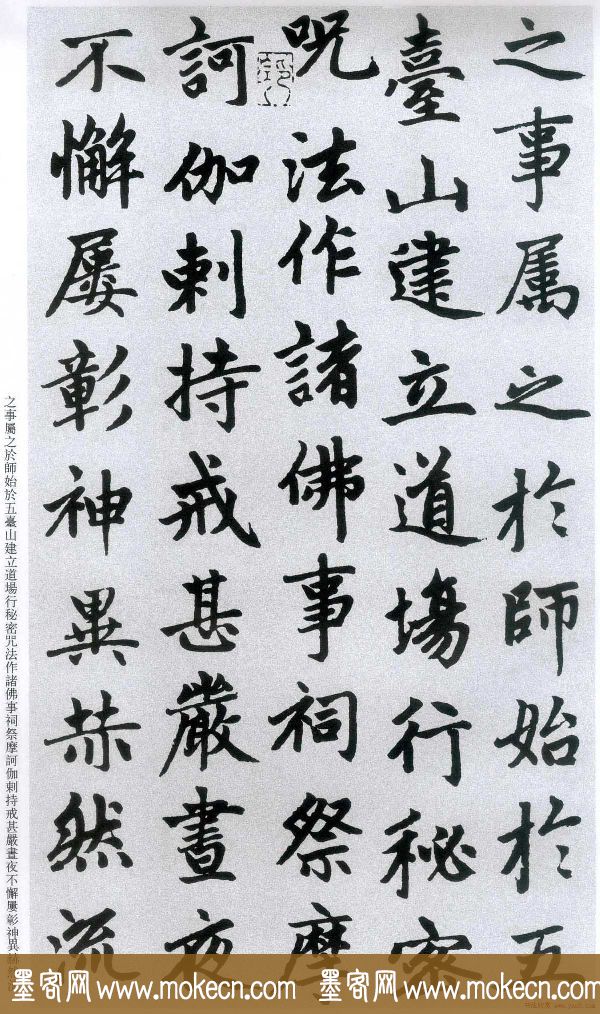 之事属之於師始於五
臺山建立道場行秘密
呪法作諸佛事祠祭摩
訶伽剌持戒甚嚴晝夜
不懈屢彰神異赫然流
之事屬之於師始於五臺山建立道場行秘密咒法作諸佛事祠祭摩訶伽剌持戒甚嚴晝夜不懈屢彰神異赫然
墨客网 www.mokecn.com 墨客网 www.mokecn.com